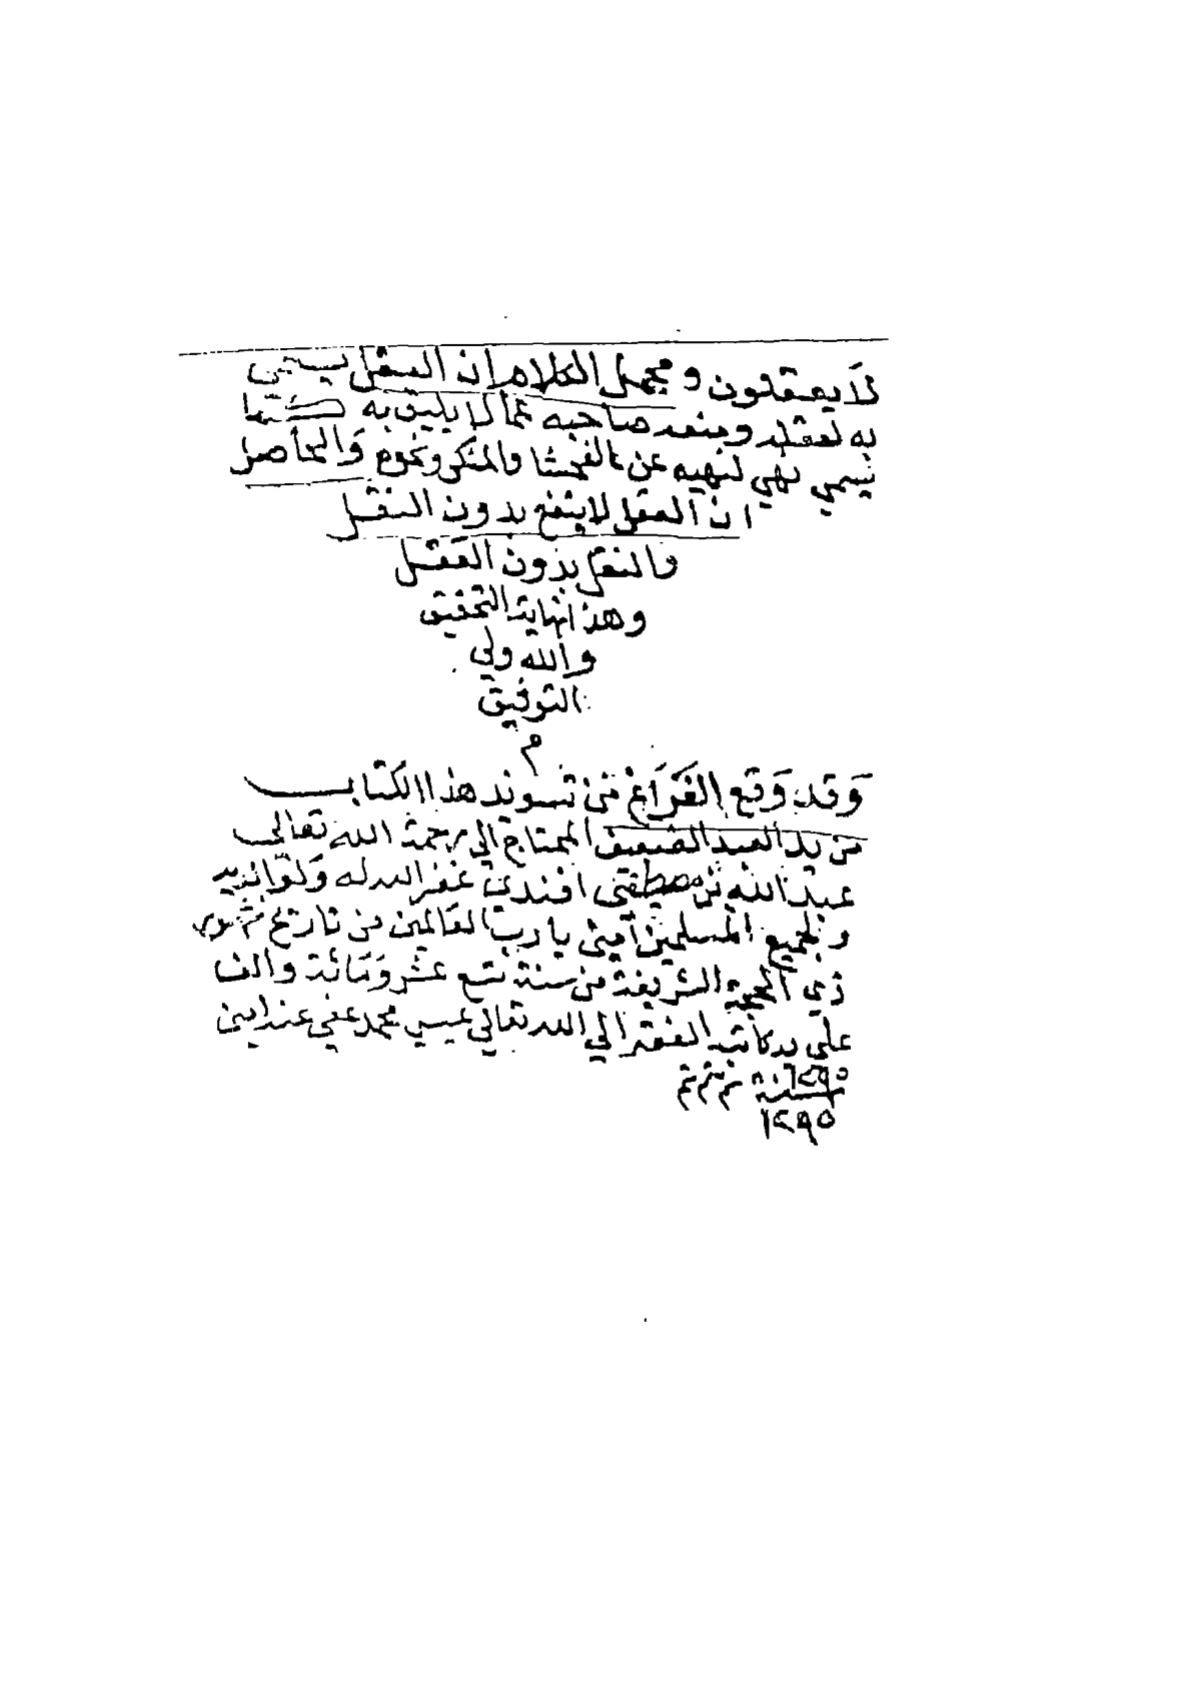 لَا يعقلون ومجمل الكلام ان العقل يسمى
به لعقله ومنعه صاحبه عما لا يليق به كما
يسمي نهي لنهيه عن الفحشا والمنكر ونحوه وَالحاصل
ان العقل لا ينفع بدون النقل
والنقل بدون العقل
وهذا نهاية التحقيق
والله ولي
التوفيق
م
وَقد وَقع الفَرَاغ من تسويد هذا الكتاب
من يد العبد الضعيف المحتاج الي رحمة الله تعالى
عبد الله بن مصطفى افندي غفر الله له وَلوَالديه
ولجميع المسلمين آمين يا رب العَالمين من تاريخ شهر
ذي الحجة الشريفة من سنة تسع عشر وَمَائة والف
علي يد كاتبه الفقير الي الله تعالي عيسي محمد عفي عنه امين
١٢٩٥ سنة تم تم تم
١٢٩٥